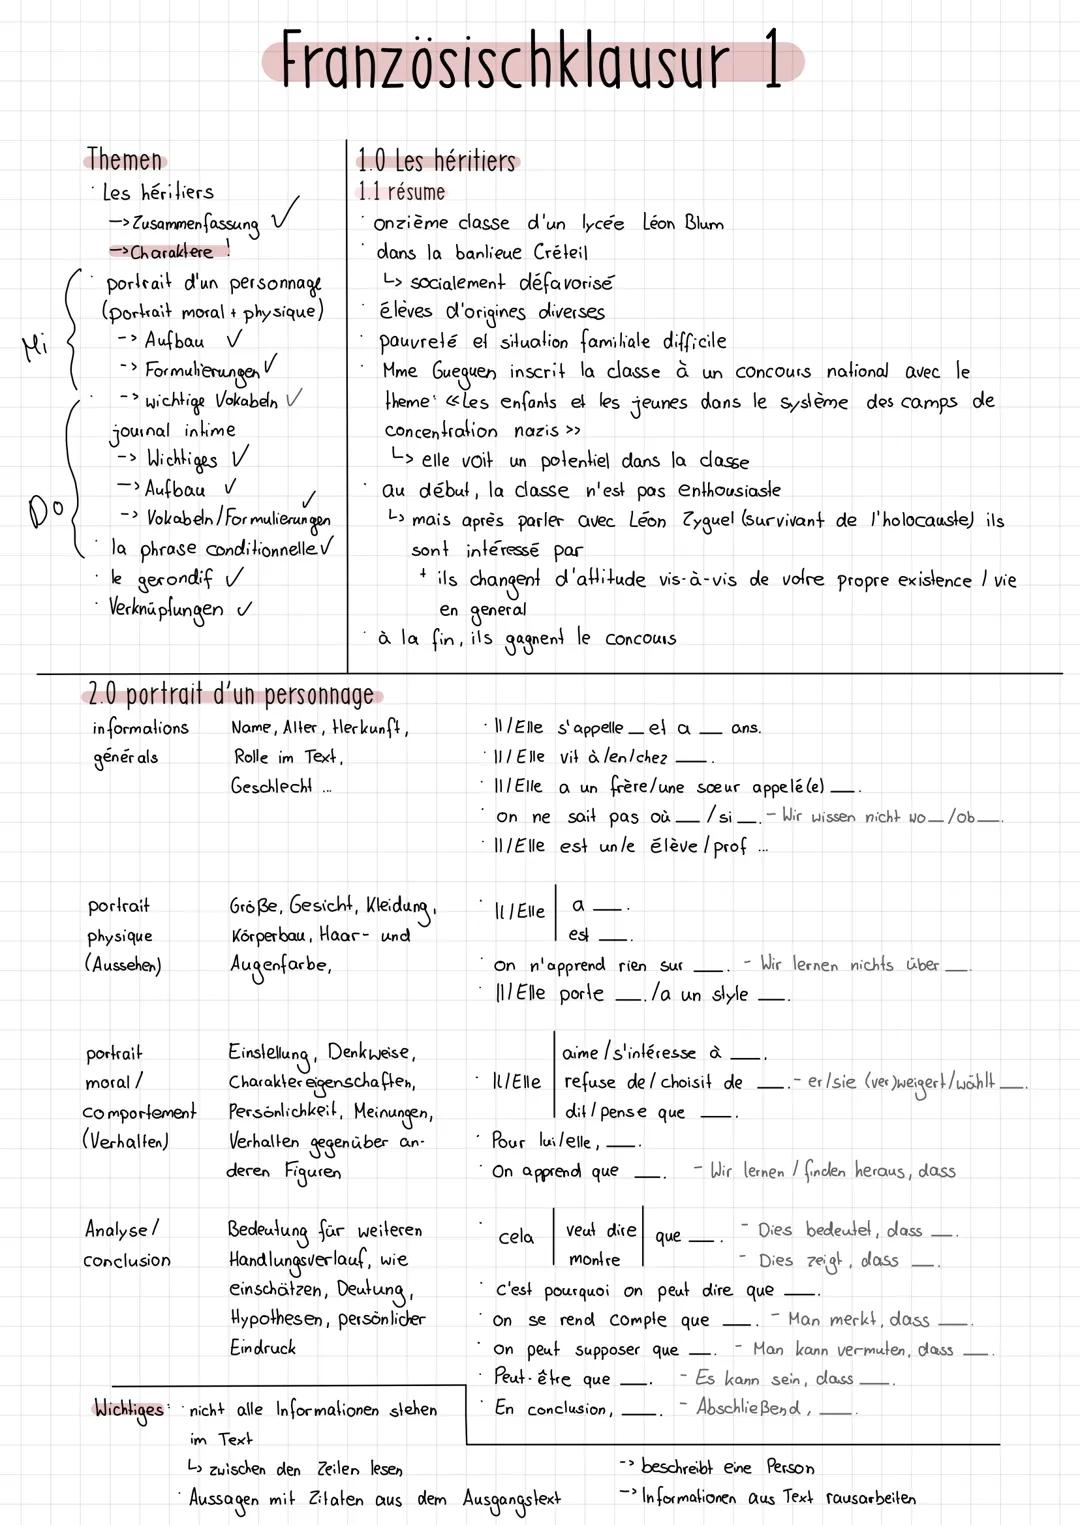 Französischklausur 1
Themen
· Les héritiers
-> Zusammenfassung ✓
-> Charaktere !
Mi
· portrait d'un personnage
(portrait moral + physique)
-> Aufbau ✓
-> Formulierungen ✓
-> wichtige Vokabeln ✓
Do
· journal intime
-> Wichtiges ✓
-> Aufbau ✓
-> Vokabeln/Formulierungen ✓
· la phrase conditionnelle ✓
· le gerondif ✓
· Verknüpfungen ✓
1.0 Les héritiers
1.1 résume
· onzième classe d'un lycée Léon Blum
· dans la banlieue Créteil
↳ socialement défavorisé
· élèves d'origines diverses
· pauvreté et situation familiale difficile
· Mme Gueguen inscrit la classe à un concours national avec le
theme: «Les enfants et les jeunes dans le système des camps de
concentration nazis >>
↳ elle voit un potentiel dans la classe
· au début, la classe n'est pas enthousiaste
↳ mais après parler avec Léon Zyguel (survivant de l'holocauste) ils
sont intéressé par
+ ils changent d'attitude vis-à-vis de votre propre existence / vie
en general
· à la fin, ils gagnent le concours
2.0 portrait d'un personnage
informations Name, Alter, Herkunft, · Il/Elle s'appelle __ et a __ ans.
générals Rolle im Text, · Il/Elle vit à/en/chez __.
Geschlecht ... · Il/Elle a un frère/une sœur appelé(e) __.
· on ne sait pas où __ / si __. - Wir wissen nicht wo __/ob __.
· Il/Elle est un/e élève/prof ...
portrait Größe, Gesicht, Kleidung, · Il/Elle | a __.
physique Körperbau, Haar- und | est __.
(Aussehen) Augenfarbe, · on n'apprend rien sur __. - Wir lernen nichts über __.
· Il/Elle porte __./a un style __.
portrait Einstellung, Denkweise, | aime/s'intéresse à __.
moral / Charaktereigenschaften, · Il/Elle | refuse de/choisit de __. - er/sie (ver)weigert/wählt __.
comportement Persönlichkeit, Meinungen, | dit/pense que __.
(Verhalten) Verhalten gegenüber an- · Pour lui/elle, __.
deren Figuren · On apprend que __. - Wir lernen / finden heraus, dass
Analyse / Bedeutung für weiteren · cela | veut dire | que __. - Dies bedeutet, dass __.
conclusion Handlungsverlauf, wie | montre | - Dies zeigt, dass __.
einschätzen, Deutung, · c'est pourquoi on peut dire que __.
Hypothesen, persönlicher · on se rend compte que __. - Man merkt, dass __.
Eindruck · on peut supposer que __. - Man kann vermuten, dass __.
· Peut-être que __. - Es kann sein, dass __.
· En conclusion, __. - Abschließend, __.
Wichtiges: · nicht alle Informationen stehen
im Text
↳ zwischen den Zeilen lesen
· Aussagen mit Zitaten aus dem Ausgangstext
-> beschreibt eine Person
-> Informationen aus Text rausarbeiten